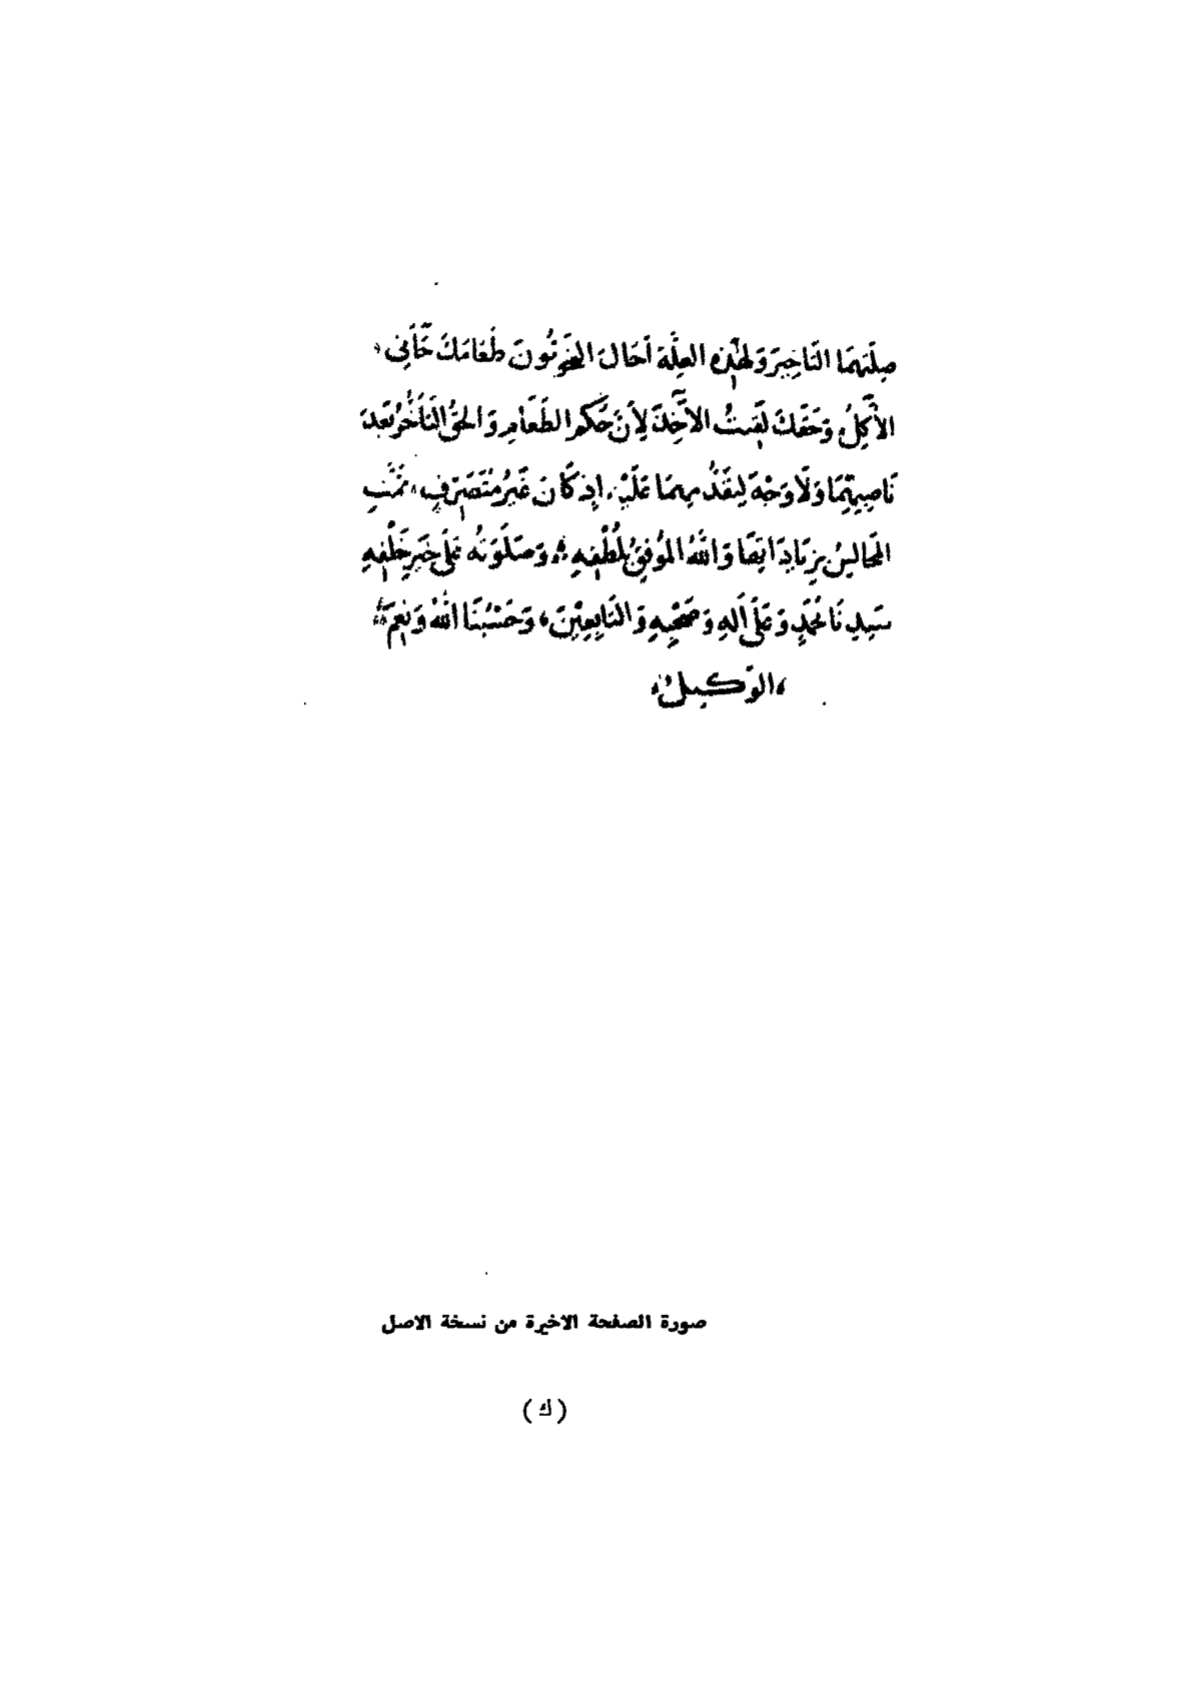 صِلَتِهِمَا التَّأخِيرَ وَلِهَذِهِ العِلَّةِ أَحَالَ النَّحْوِيُّونَ طَعَامَكَ جَاءَنِي
الآكِلُ وَحَقَّكَ لَقِيتُ الآخِذَ لِأَنَّ حُكْمَ الطَّعَامِ وَالحَقِّ التَّأَخُّرُ بَعْدَ
نَاصِبِيْهِمَا وَلَا وَجْهَ لِتَقَدُّمِهِمَا عَلَيْهِ إِذْ كَانَ غَيْرُ مُتَصَرِّفٍ، تَمَّتِ
المَجَالِسُ بِزِيَادَاتِهَا وَاللهُ المُوَفِّقُ بِلُطْفِهِ وَصَلَوَتُهُ عَلَى خَيْرِ خَلْقِهِ
سَيِّدِنَا مُحَمَّدٍ وَعَلَى آلِهِ وَصَحْبِهِ وَالتَّابِعِيْنَ، وَحَسْبُنَا اللهُ وَنِعْمَ
الوَكِيلُ،
صورة الصفحة الاخيرة من نسخة الاصل
(ك)